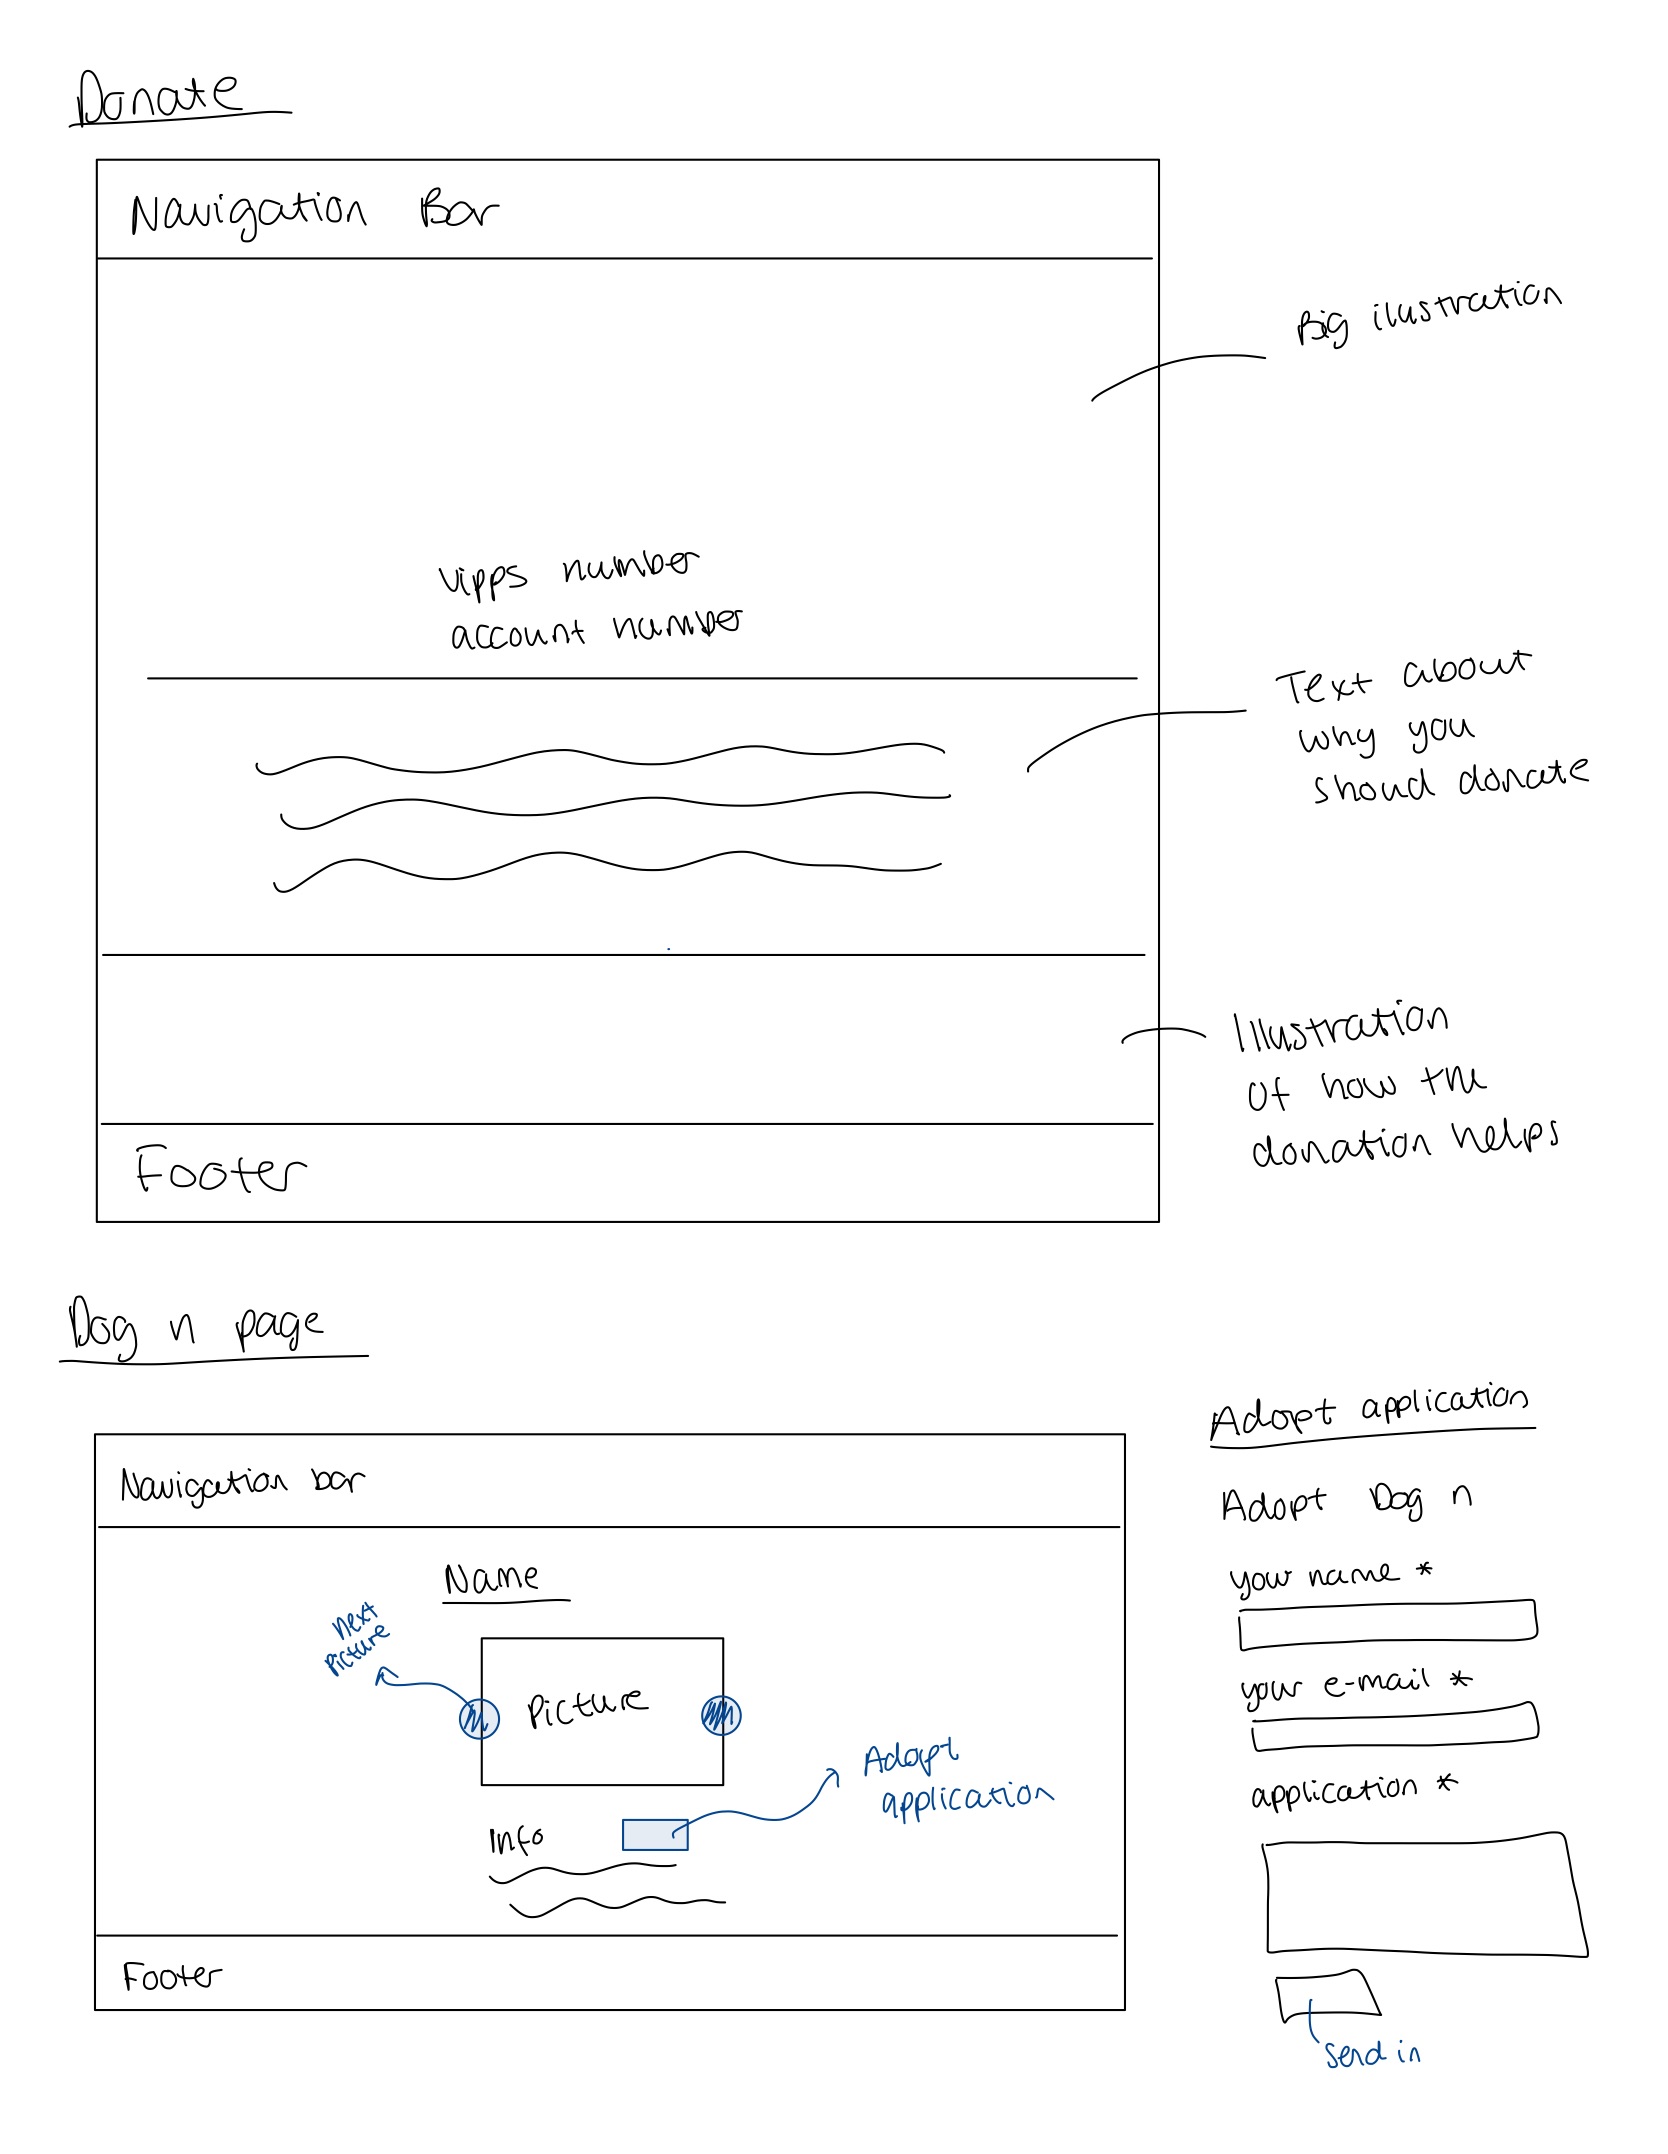 Donate
Navigation Bar
Big ilustration
Vipps number
account number
Text about
why you
shoud donate
Illustration
of how the
donation helps
Footer
Dog n page
Navigation bar
Name
next
picture
Picture
Adopt
application
Info
Footer
Adopt application
Adopt Dog n
your name *
your e-mail *
application *
Send in